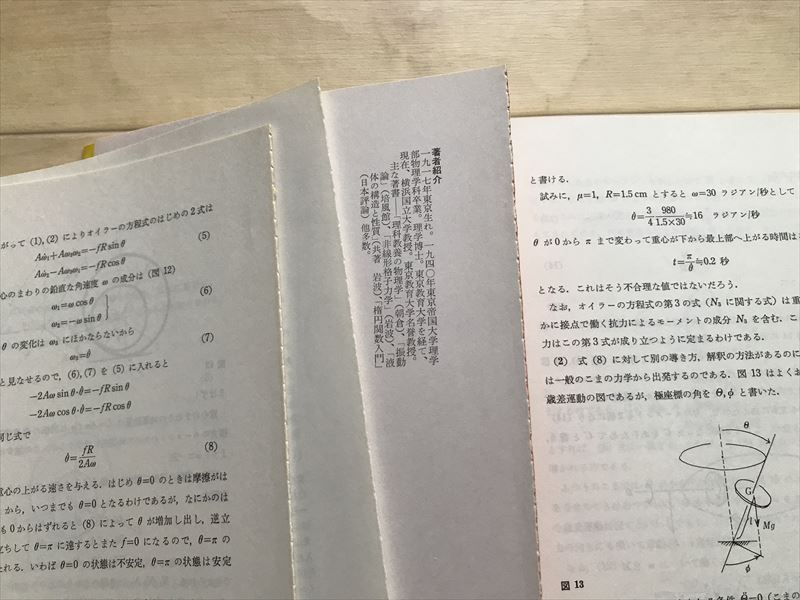 がって (1), (2) によりオイラーの方程式のはじめの2式は
Aω̇₁+Aω₃ω₂=−fR sin θ
(5)
Aω̇₂−Aω₃ω₁=−fR cos θ
心のまわりの鉛直な角速度 ω の成分は (図 12)
ω₁=ω cos θ
ω₂=−ω sin θ
(6)
θ の変化は ω₃ にほかならないから
ω₃=θ̇
(7)
と見なせるので, (6), (7) を (5) に入れると
−2Aω sin θ·θ̇=−fR sin θ
−2Aω cos θ·θ̇=−fR cos θ
同じ式で
θ̇=fR/2Aω
(8)
重心の上がる速さを与える. はじめ θ=0 のときは摩擦がは
から, いつまでも θ=0 となるわけであるが, なにかのは
も0からはずれると (8) によって θ が増加し出し, 逆立
立ちして θ=π に達するとまた f=0 になるので, θ=π の
れる. いわば θ=0 の状態は不安定, θ=π の状態は安定
著者紹介
一九一七年東京生れ。一九四〇年東京帝国大学理学
部物理学科卒業。理学博士。東京教育大学を経て、
現在、横浜国立大学教授。東京教育大学名誉教授。
主な著書──「理科教養の物理学」(朝倉)、「振動
論」(培風館)、「非線形格子力学」(岩波)、「液
体の構造と性質」(共著 岩波)、「楕円関数入門」
(日本評論)他多数。
と書ける.
試みに, μ=1, R=1.5 cm とすると ω=30 ラジアン/秒として
θ̇=3/4 980/1.5×30≒16 ラジアン/秒
θ が0から π まで変わって重心が下から最上部へ上がる時間は
t=π/θ̇≒0.2 秒
となる. これはそう不合理な値ではないだろう.
なお, オイラーの方程式の第3の式 (N₃ に関する式) は重
かに接点で働く抗力によるモーメントの成分 N₃ を含む. こ
力はこの第3式が成り立つように定まるわけである.
(2) 式 (8) に対して別の導き方, 解釈の方法があるのに
は一般のこまの力学から出発するのである. 図 13 はよくお
歳差運動の図であるが, 極座標の角を Θ, φ と書いた.
Θ
G
l
Mg
φ
図 13
Θ̈=0 (こまの